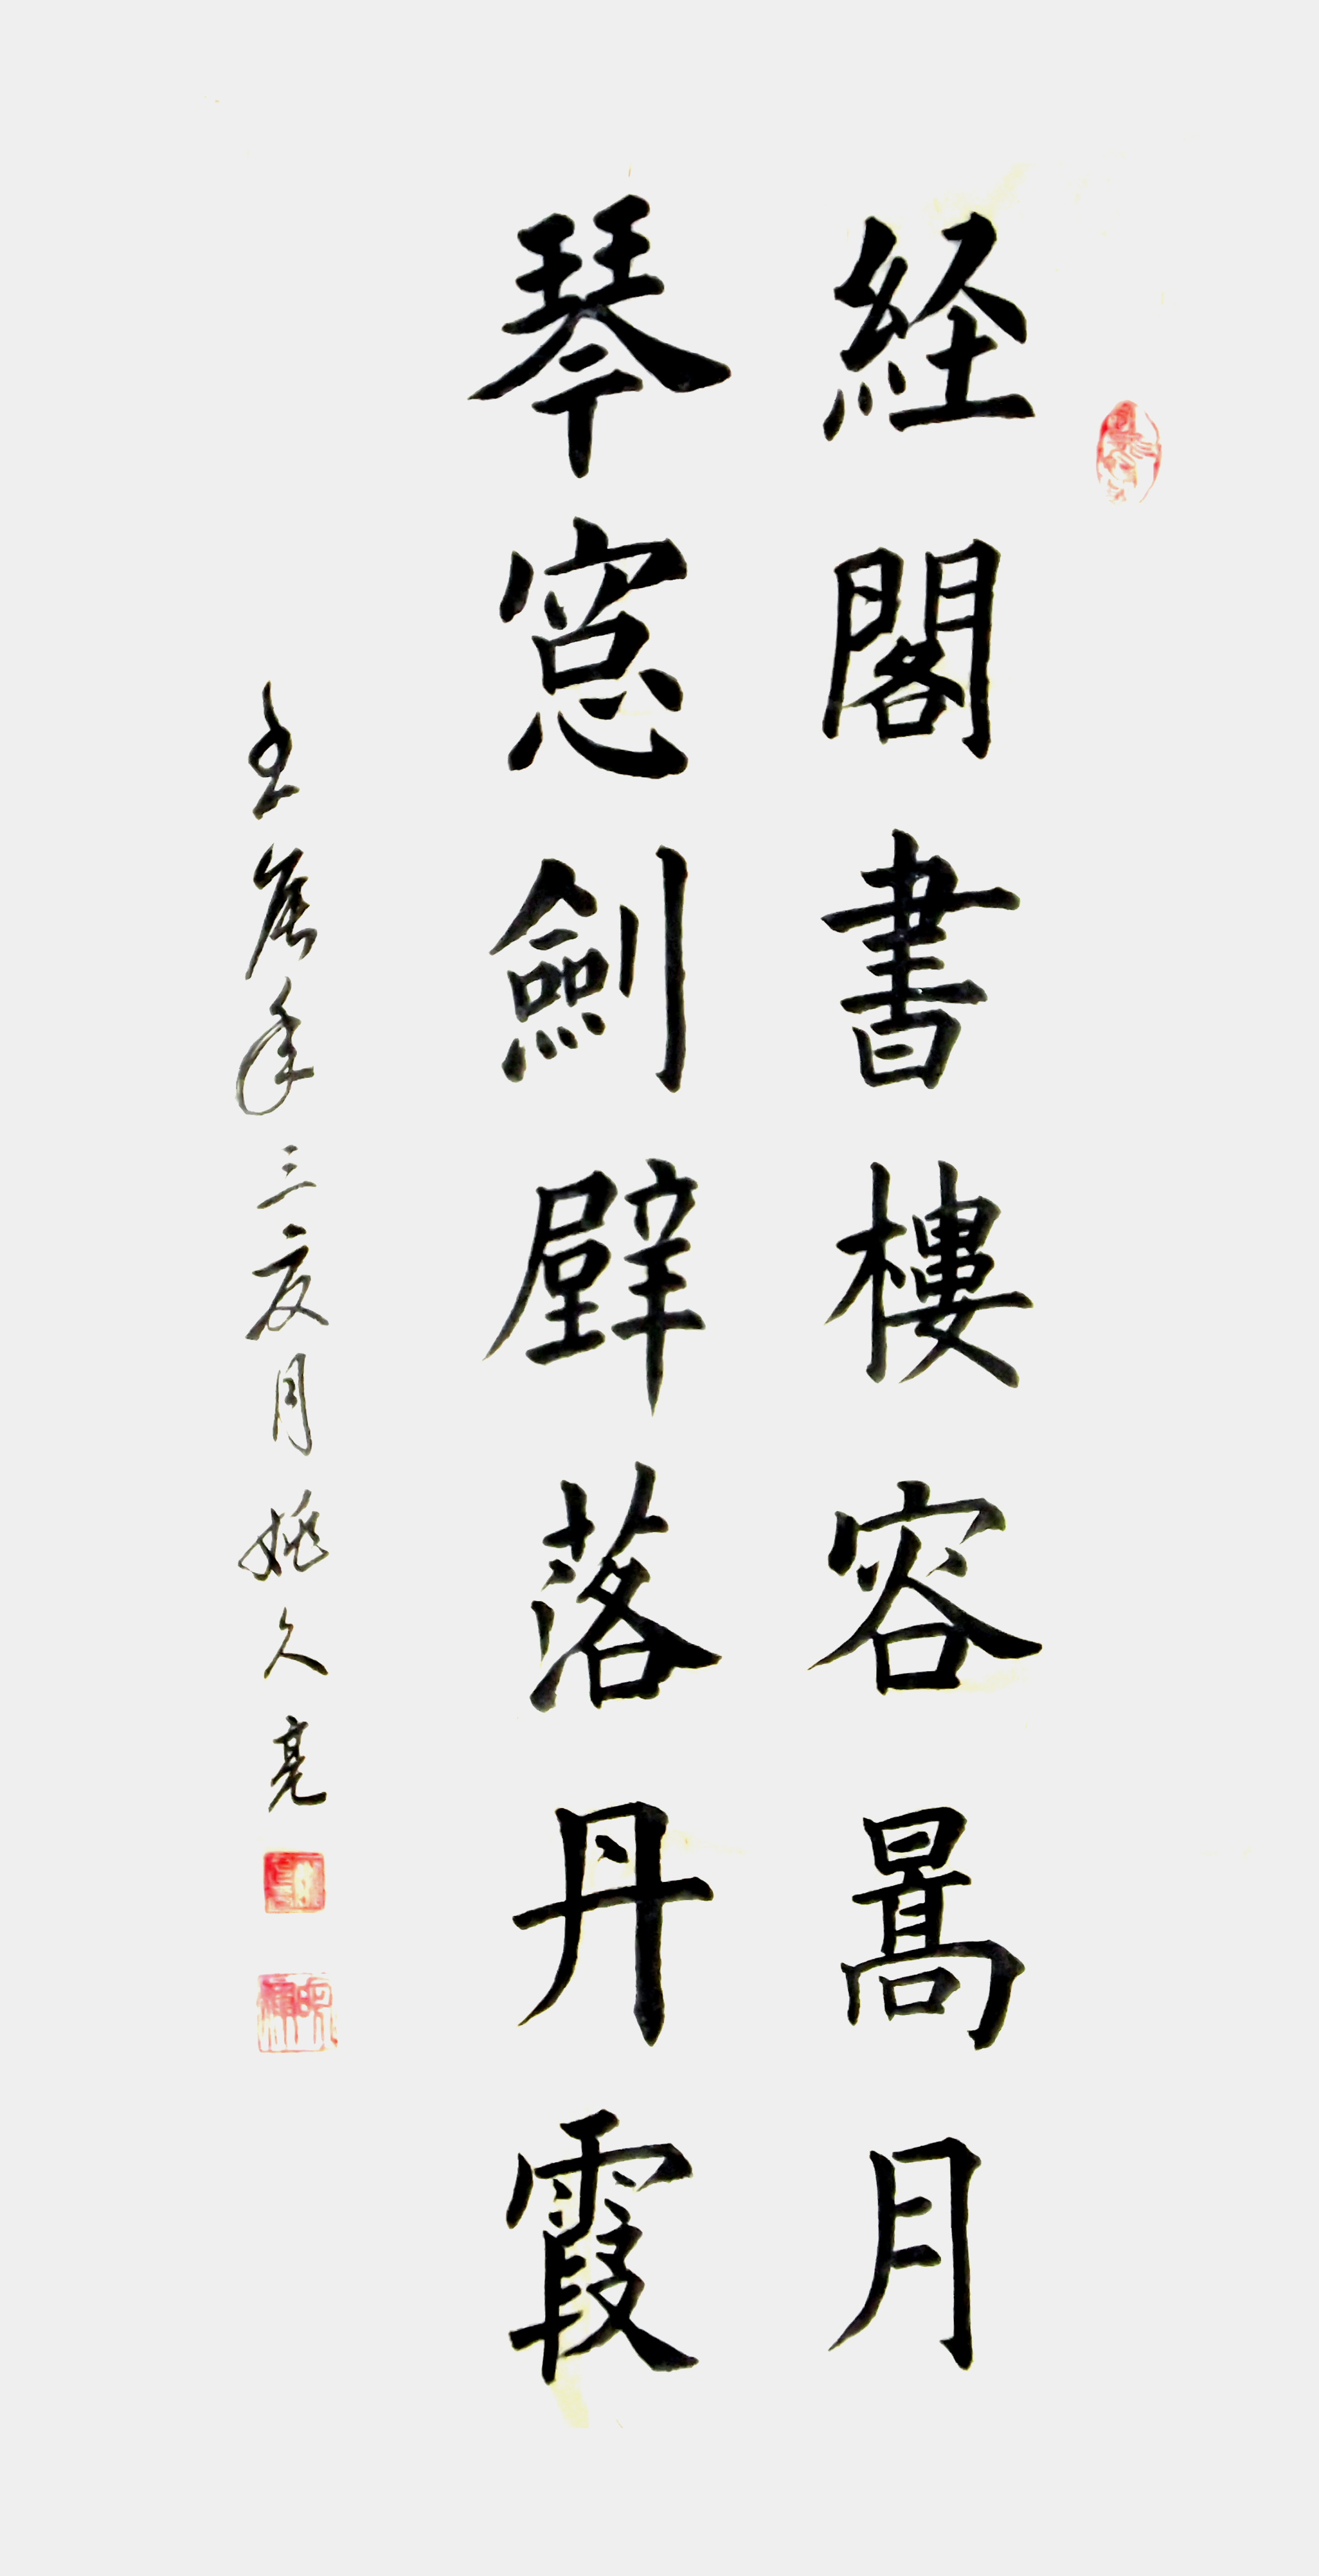 経閣書樓容暠月
琴窓劍壁落丹霞
壬寅年三夏月姚久亮